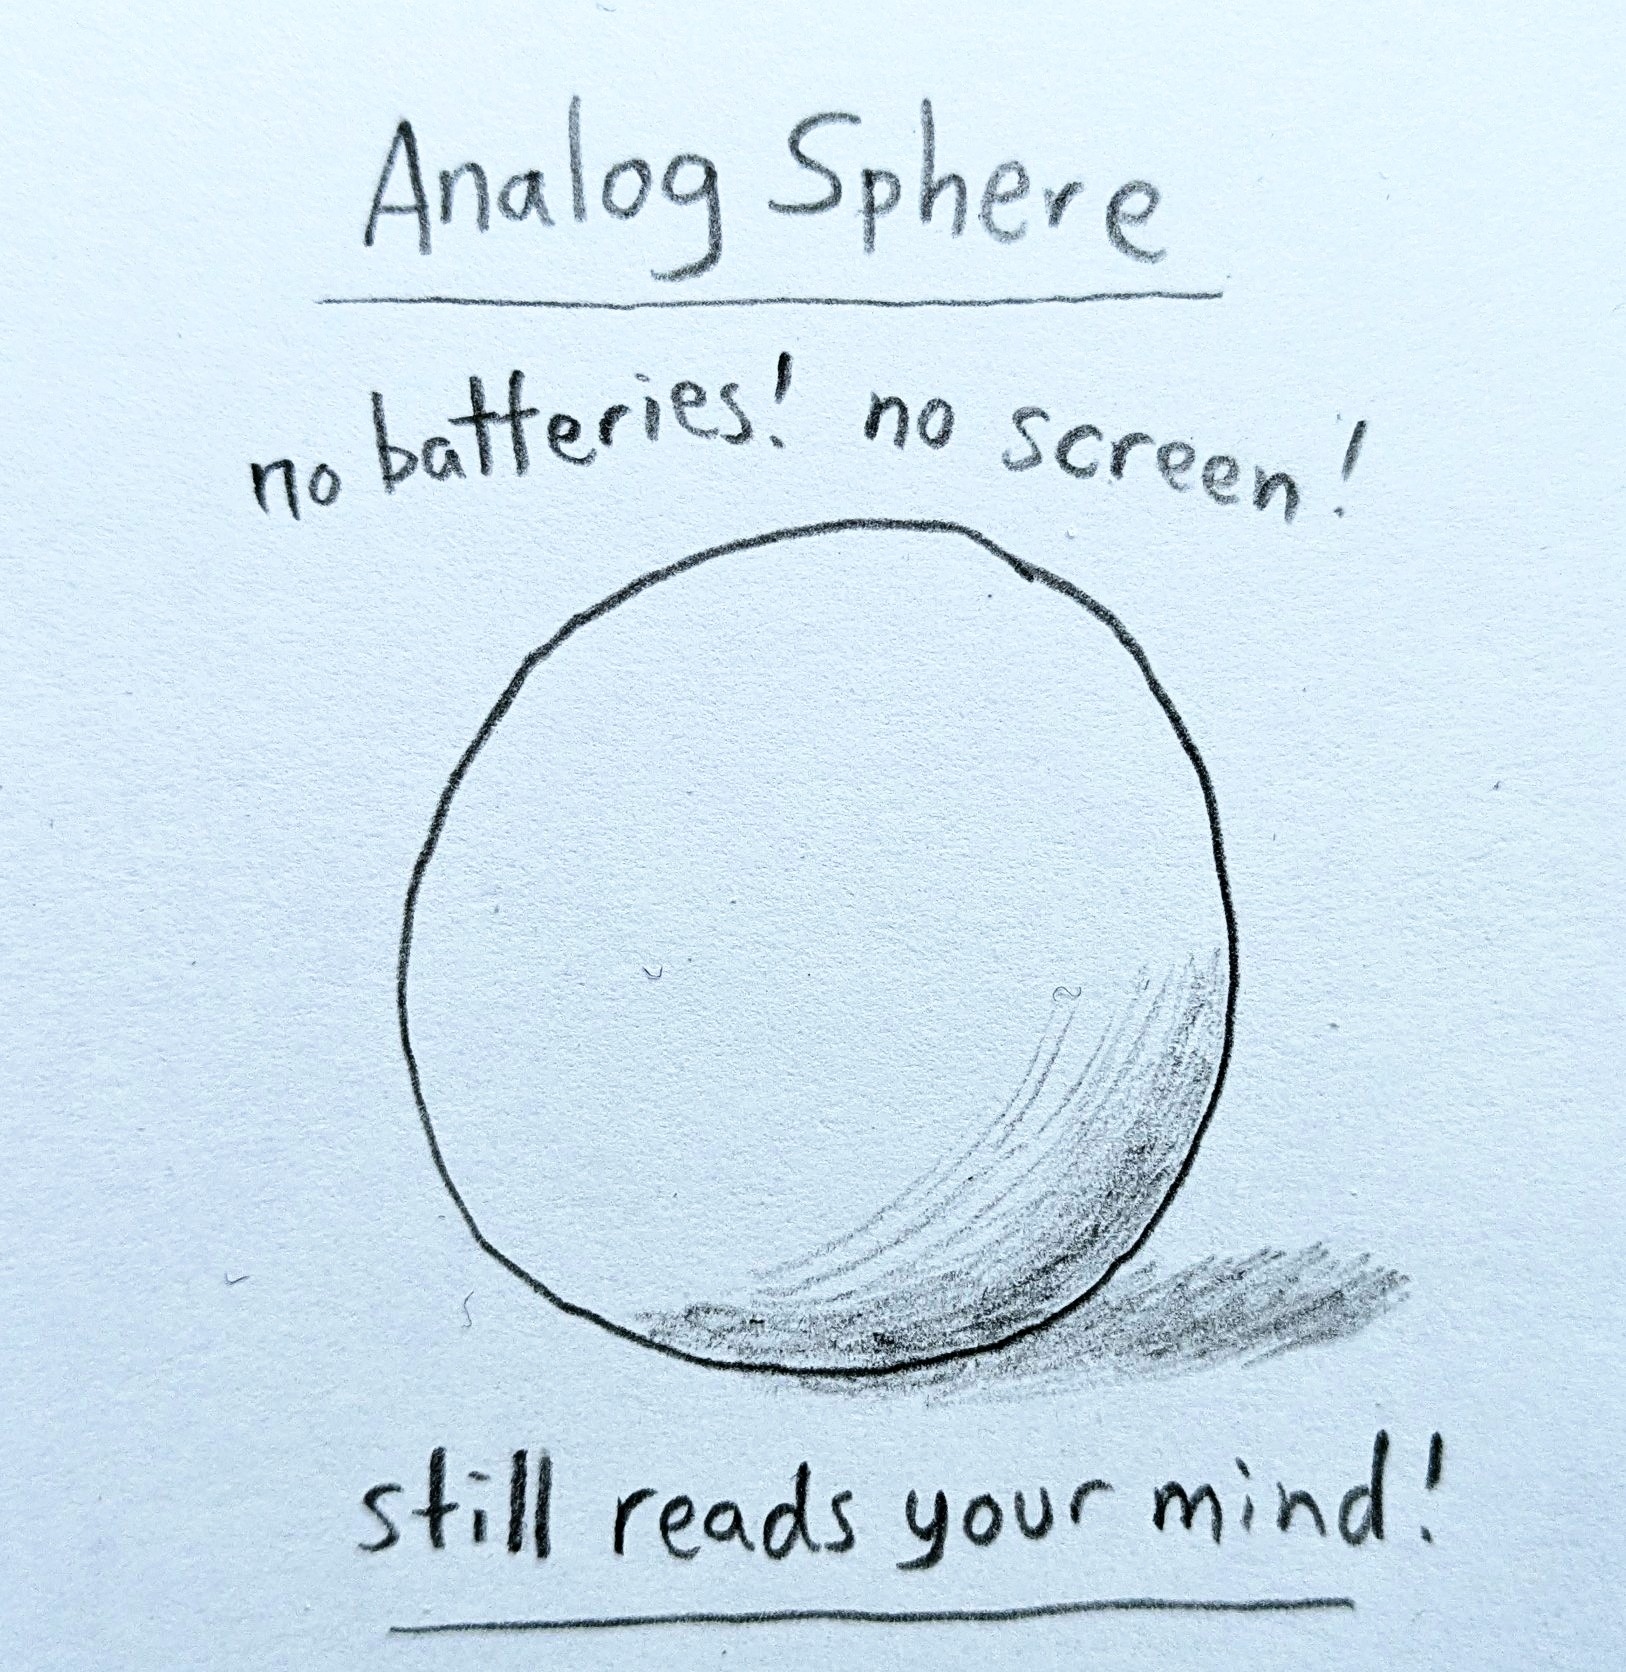 Analog Sphere
no batteries! no screen!
still reads your mind!